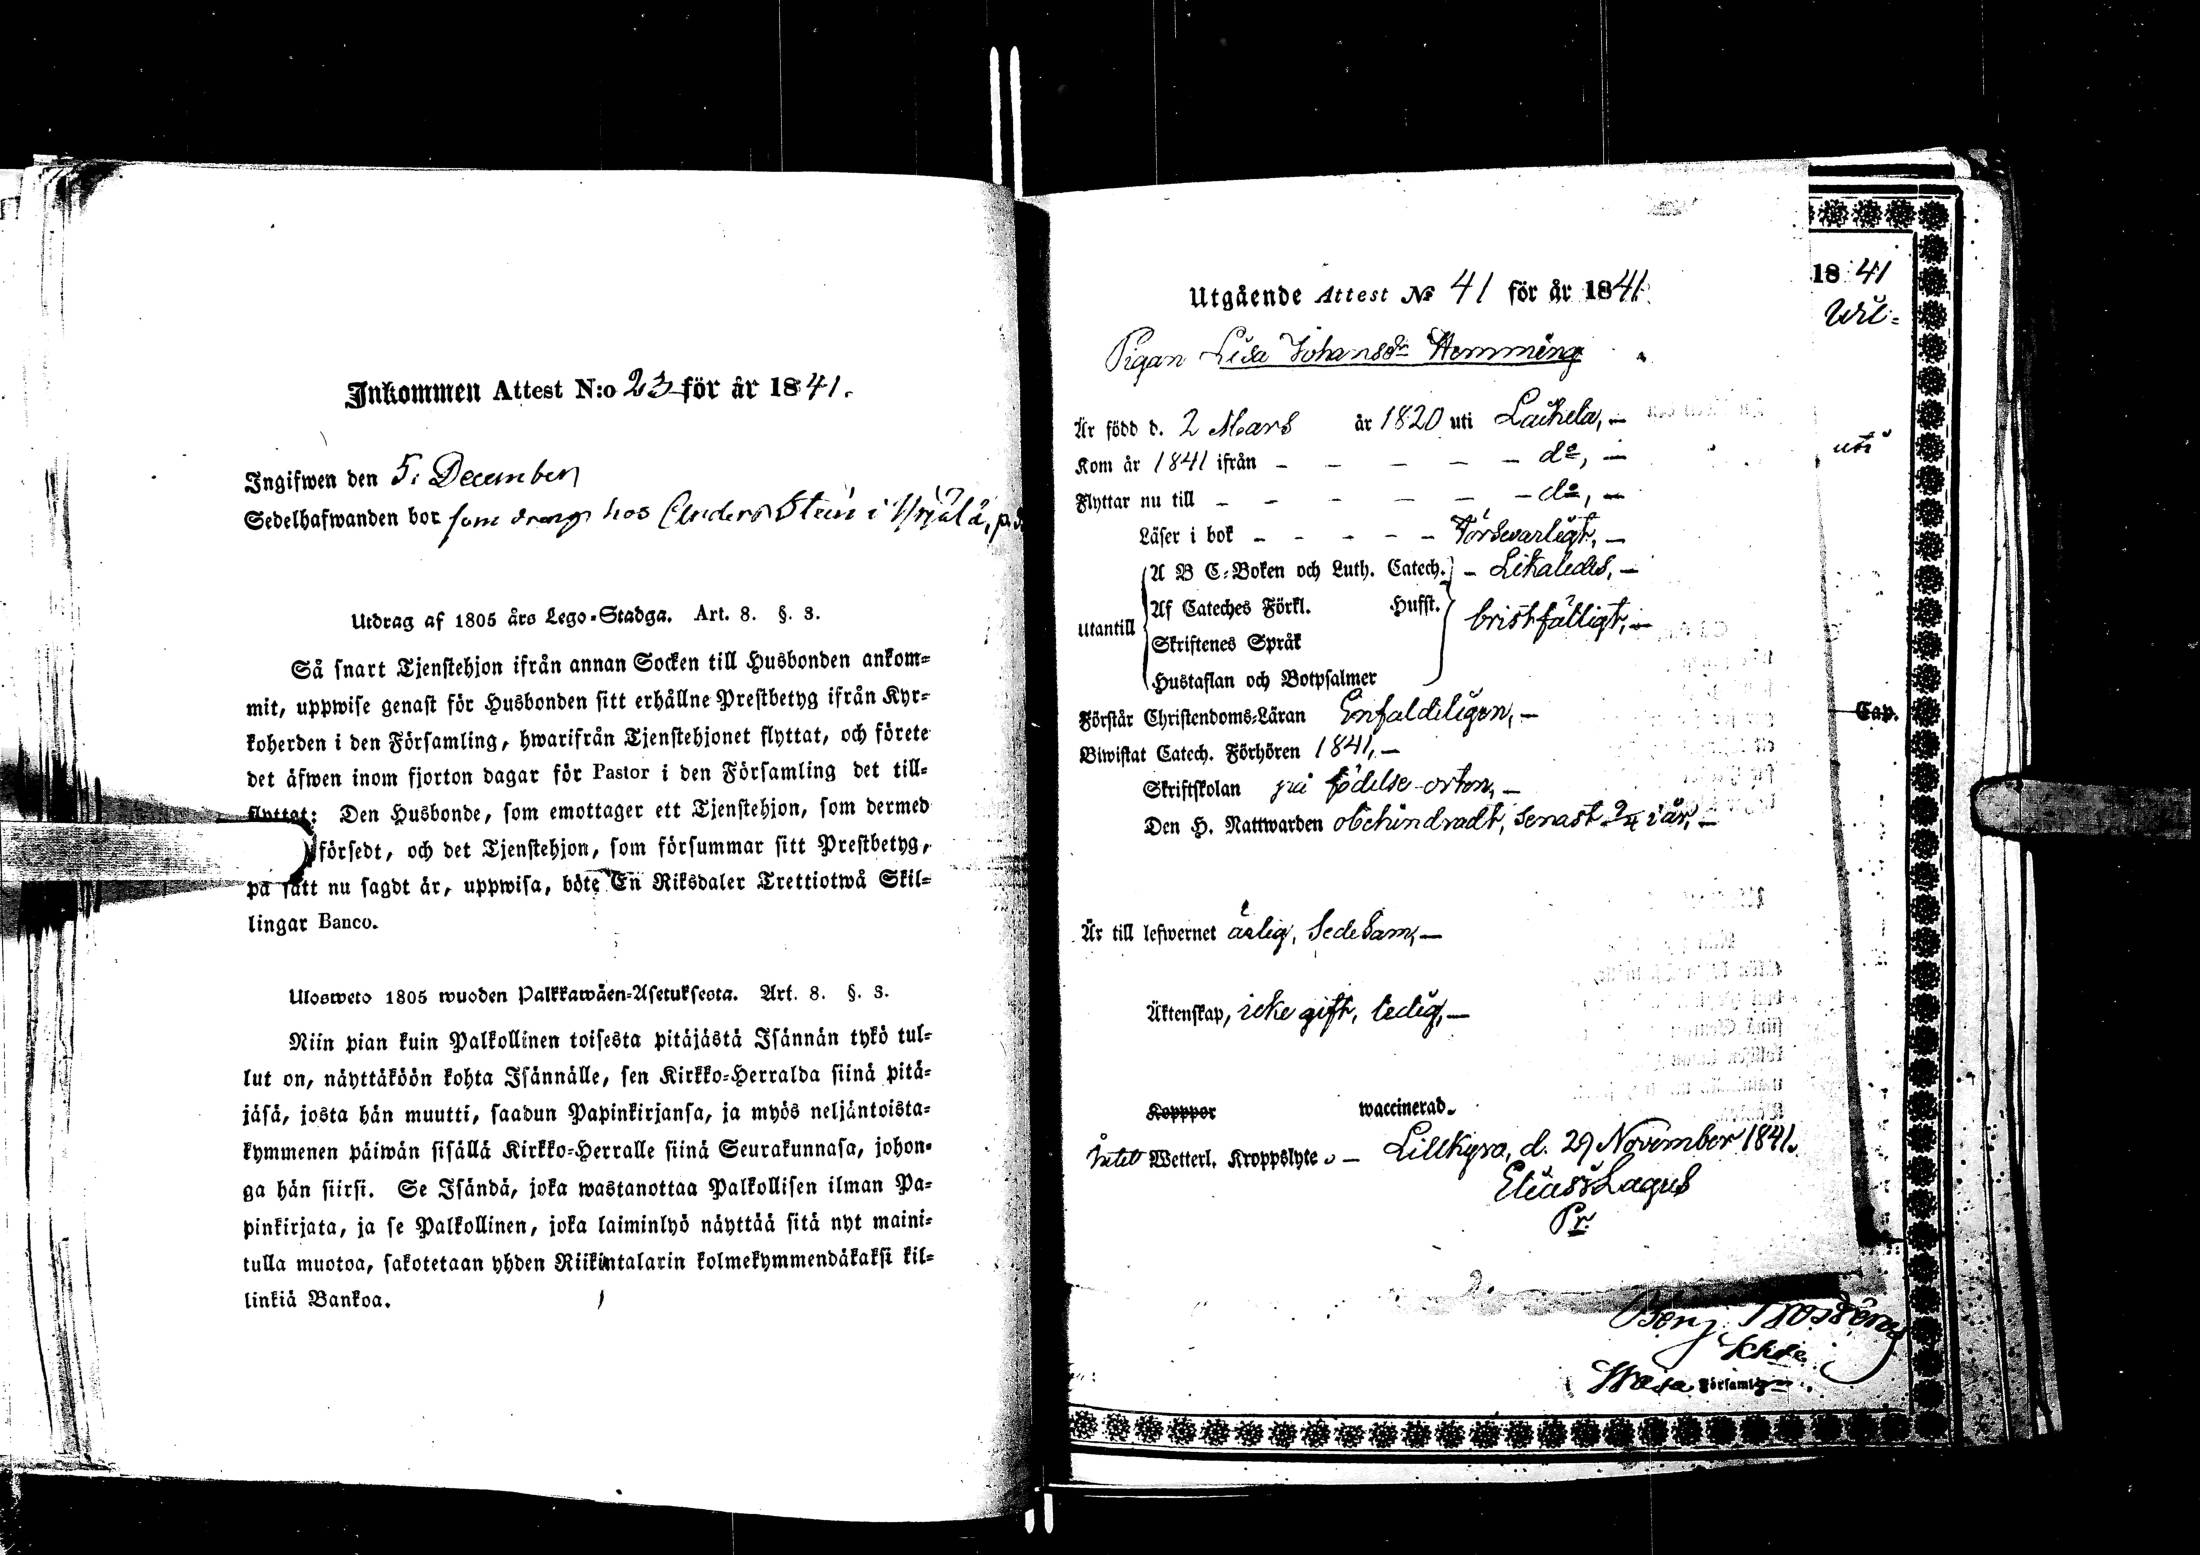 Inkommen Attest N:o 23 för år 1841.
Ingifwen den 5. December
Sedelhafwanden bor som dräng hos Anders Stein i
Utdrag af 1805 års Lego-Stadga. Art. 8. §. 3.
Så snart Tjenstehjon ifrån annan Socken till Husbonden ankom=
mit, uppwise genast för Husbonden sitt erhållne Prestbetyg ifrån Kyr=
koherden i den Församling, hwarifrån Tjenstehjonet flyttat, och förete
det äfwen inom fjorton dagar för Pastor i den Församling det till=
flyttat: Den Husbonde, som emottager ett Tjenstehjon, som dermed
försedt, och det Tjenstehjon, som försummar sitt Prestbetyg,
på sätt nu sagdt är, uppwisa, böte En Riksdaler Trettiotwå Skil=
lingar Banco.
Ulosweto 1805 wuoden Palkkawäen=Asetuksesta. Art. 8. §. 3.
Niin pian kuin Palkollinen toisesta pitäjästä Isännän tykö tul=
lut on, näyttäköön kohta Isännälle, sen Kirkko=Herralda siinä pitä=
jäsä, josta hän muutti, saadun Papinkirjansa, ja myös neljäntoista=
kymmenen päiwän sisällä Kirkko=Herralle siinä Seurakunnasa, johon=
ga hän siirsi. Se Isändä, joka wastanottaa Palkollisen ilman Pa=
pinkirjata, ja se Palkollinen, joka laiminlyö näyttää sitä nyt maini=
tulla muotoa, sakotetaan yhden Riikintalarin kolmekymmendäkaksi kil=
linkiä Bankoa.
Utgående Attest No 41 för år 1841.
Pigan Lisa Johansdr Hemming
Är född d. 2 Mars år 1820 uti Laihela, —
Kom år 1841 ifrån – – – – – do, —
Flyttar nu till – – – – – – do, —
Läser i bok – – – – – Försvarligt, —
Utantill
A B C=Boken och Luth. Catech. – Likaledes, —
Af Cateches Förkl. Hufst. bristfälligt, —
Skriftenes Språk
Hustaflan och Botpsalmer
Förstår Christendoms=Läran Enfaldeligen, —
Biwistat Catech. Förhören 1841, —
Skriftskolan på födelse-orten, —
Den H. Nattwarden obehindradt, senast i år, —
Är till lefwernet ärlig, sedesam, —
Äktenskap, icke gift, ledig, —
Kopppor waccinerad.
Intet Wetterl. Kroppslyte. — Lillkyro, d. 29 November 1841.
Elias Lagus
Pr.
1841
Wil=
uti
Cap.
Benj.
Wasa Församl